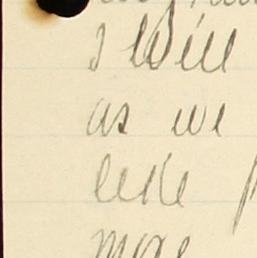 I will
as we
like
more